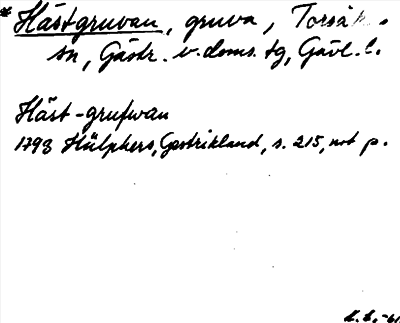 * Hästgruvan, gruva, Torsåk.
sn, Gästr. v. doms. tg, Gävl. l.
Häst-grufwan
1793 Hülphers, Gestrikland, s. 215, not p.